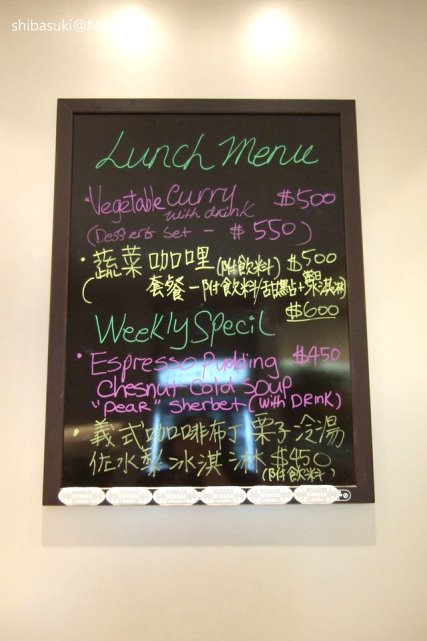 shibasuki@M
Lunch Menu
·Vegetable Curry $500
with drink
(Desserts Set - $550)
·蔬菜咖哩(附飲料) $500
(套餐-附飲料/甜點+冰淇淋
$600
Weekly Specil
·Espresso Pudding $450
Chesnut Cold Soup
"Pear" Sherbet (with Drink)
·義式咖啡布丁栗子冷湯
佐水梨冰淇淋 $450
(附飲料)